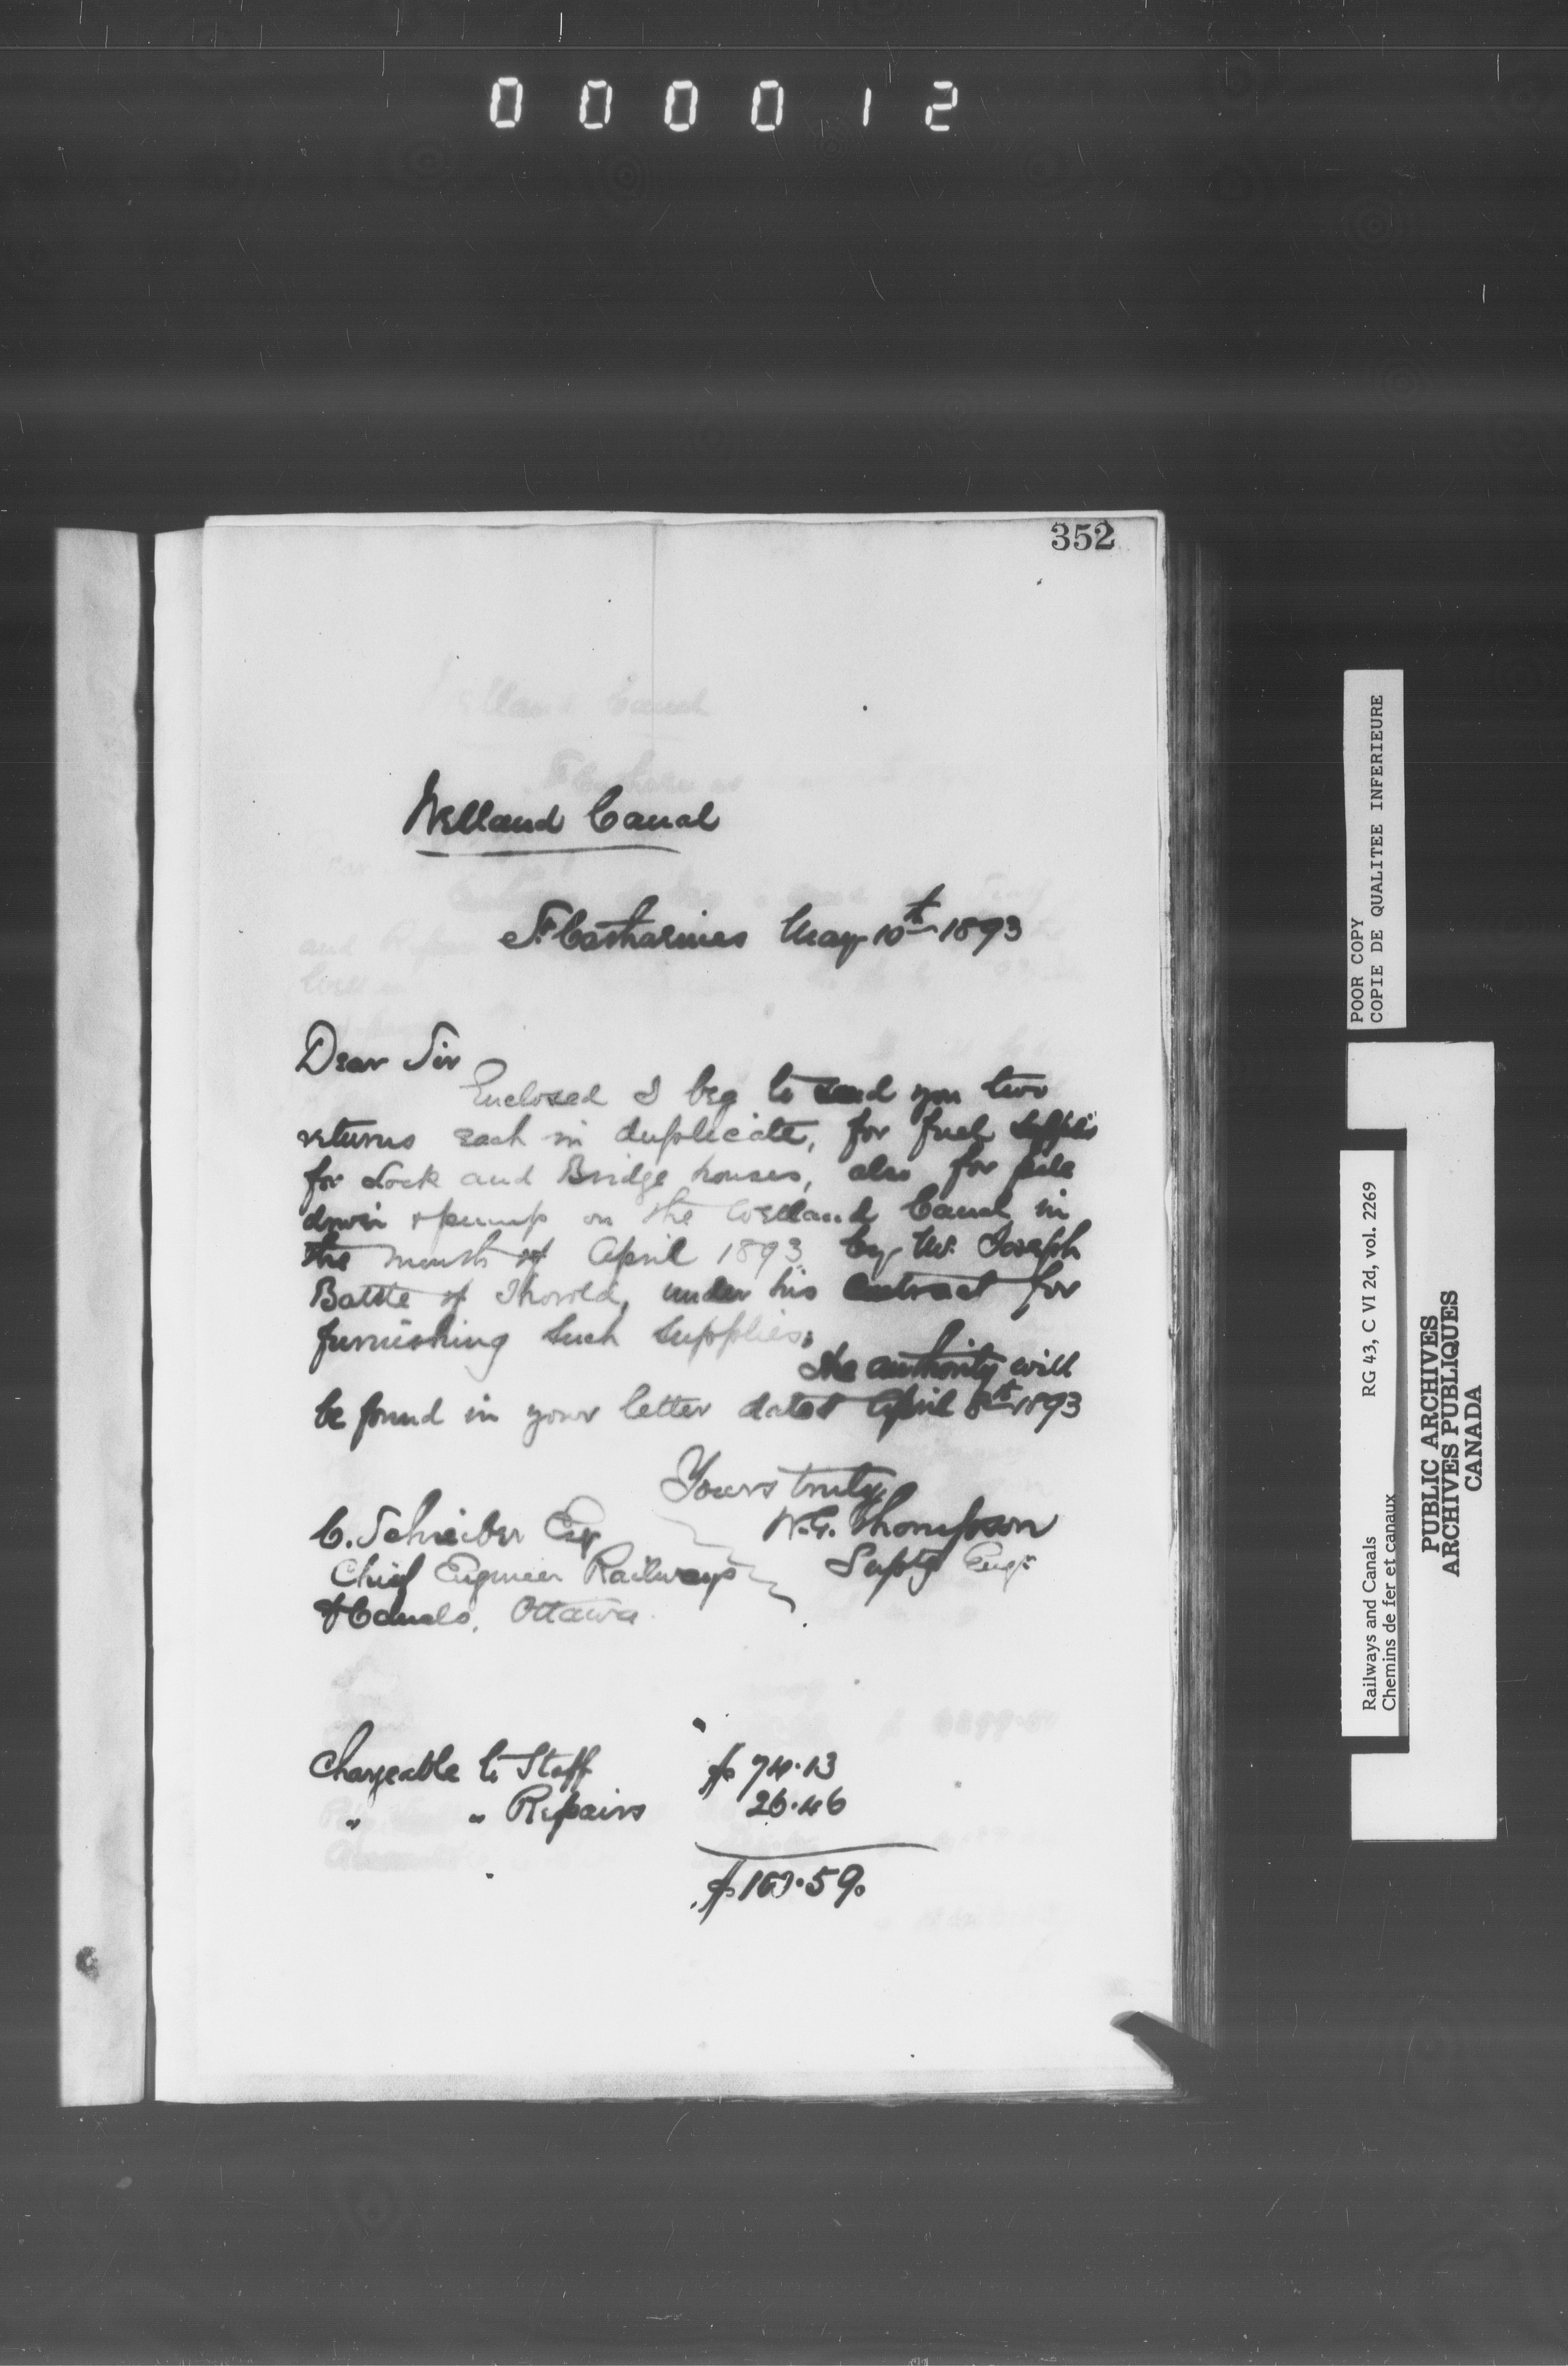 000012
352
Welland Canal
St Catharines May 10th 1893
Dear Sir
Enclosed I beg to send you two
returns each in duplicate, for fuel
for Lock and Bridge houses, also for pile
driver & pump on the Welland Canal in
the month of April 1893 by Mr. Joseph
Battle of Thorold, under his contract for
furnishing such supplies.
The authority will
be found in your letter dated April 8th 1893
Yours truly
W.G. Thompson
Suptg Engr
C. Schreiber Esq
Chief Engineer Railways
& Canals, Ottawa
Chargeable to Staff $ 74.13
" " Repairs 26.46
POOR COPY
COPIE DE QUALITEE INFERIEURE
Railways and Canals RG 43, C VI 2d, vol. 2269
Chemins de fer et canaux
PUBLIC ARCHIVES
ARCHIVES PUBLIQUES
CANADA